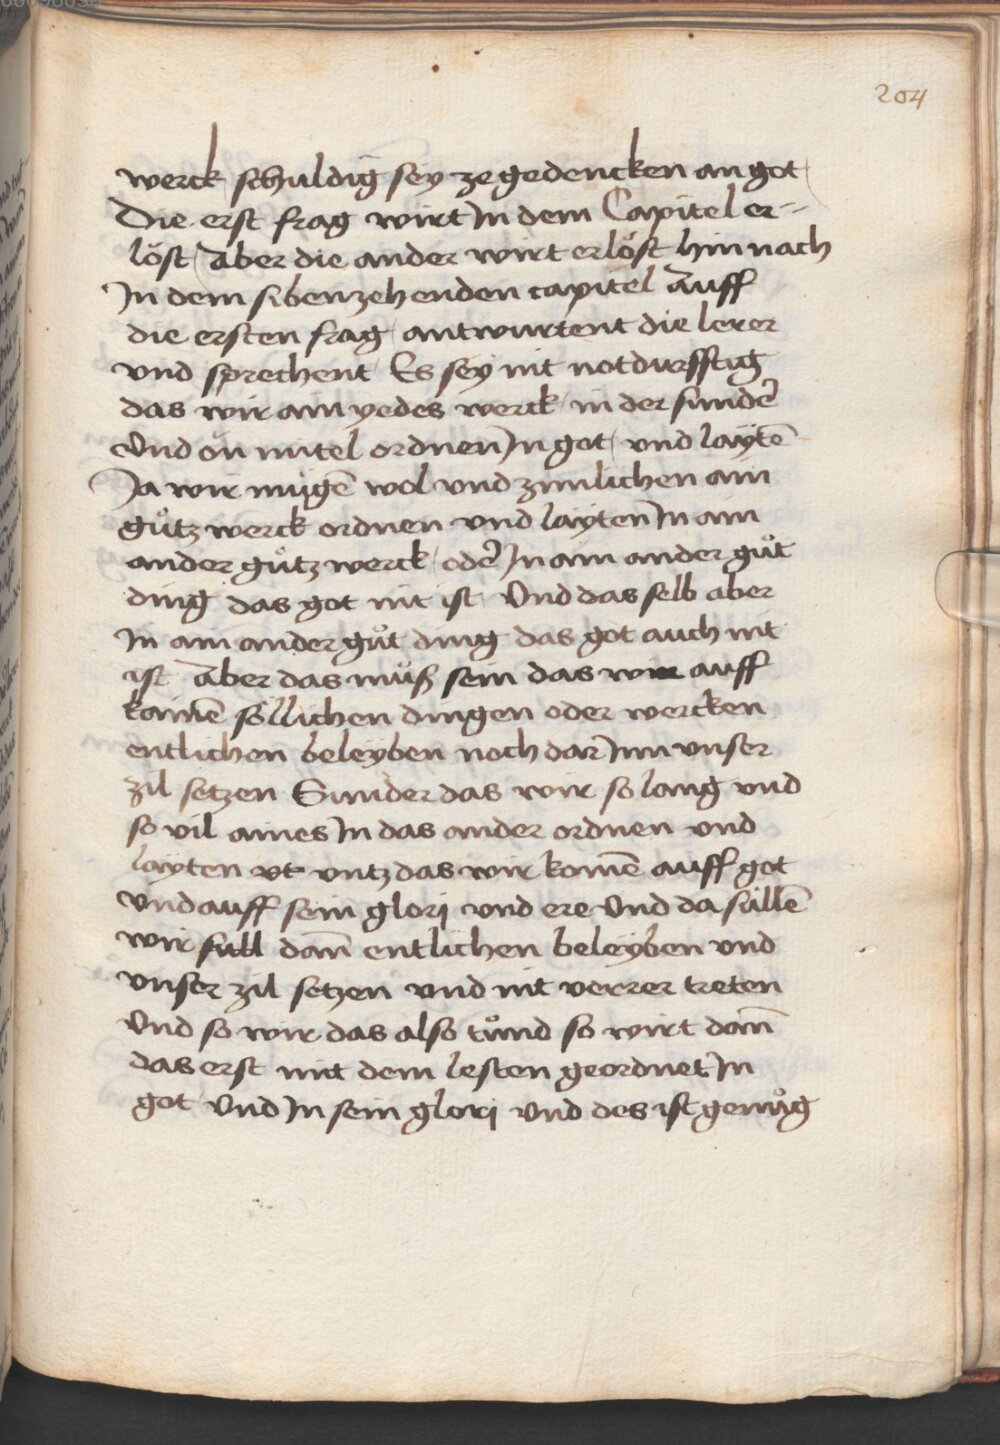 204
werck schuldig sey ze gedencken an got
Die erst frag wirt In dem Capitel er-
löst / Aber die ander wirt erlöst hin nach
In dem sibenzehenden capitel Auff
die ersten frag / antwurtent die lerer
vnd sprechent / Es sey nit notdurfftig
das wir ain yedes werck / in der sunder̄
Vnd ön mitel ordnen In got / vnd laytē
Ja wir mügē wol vnd zimlichen ain
gůtz werck ordnen vnd layten In ain
ander gůtz werck / oder̄ In ain ander gůt
ding das got nit ist Vnd das selb aber
In ain ander gůt ding das got auch nit
ist Aber das můß sein das wir auff
kainē söllichen dingen oder wercken
entlichen beleyben noch dar Inn vnser
zil setzen Sunder das wir so lang vnd
so vil aines In das ander ordnen vnd
layten vt vntz das wir komē auff got
vnd auff sein glorj vnd ere Vnd da süllē
wir süll dan̄ entlichen beleyben vnd
vnser zil setzen vnd nit verrer treten
Vnd so wir das also tůnd so wirt dan̄
das erst mit dem lesten geordnet In
got Vnd In sein glorj vnd des ist genůg